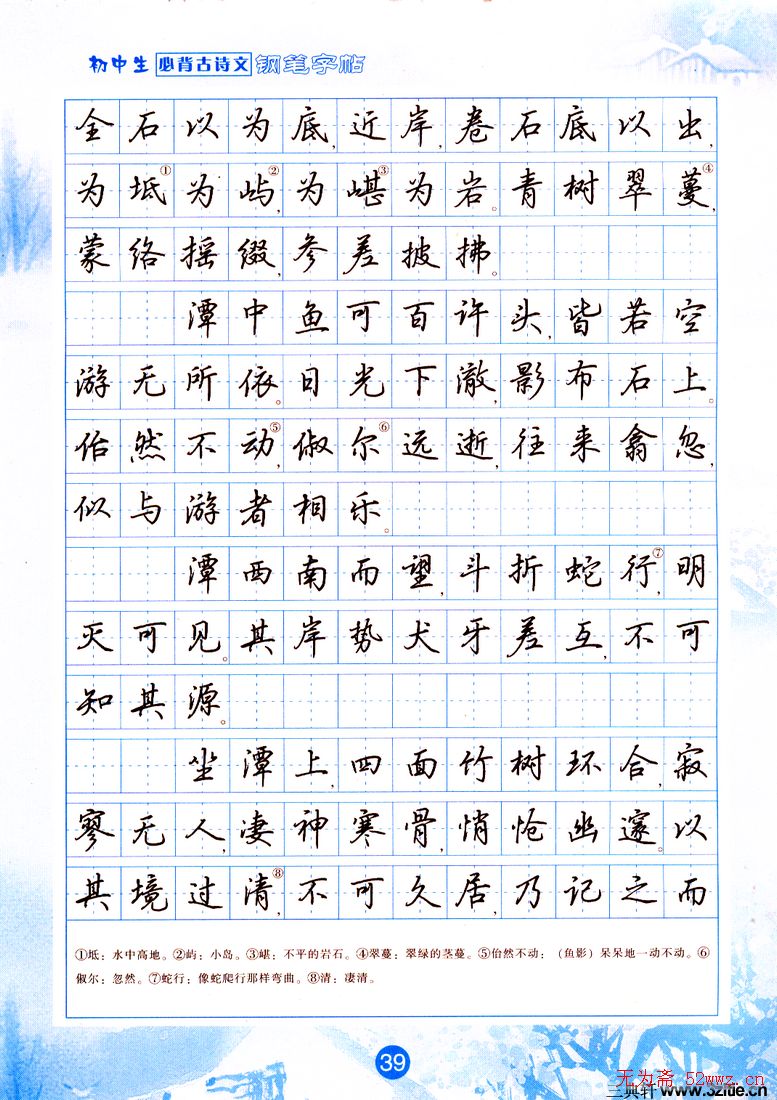 初中生 必背古诗文 钢笔字帖
全石以为底，近岸，卷石底以出，
为坻①，为屿②，为嵁③，为岩。青树翠蔓④，
蒙络摇缀，参差披拂。
潭中鱼可百许头，皆若空
游无所依。日光下澈，影布石上。
佁然不动⑤，俶尔⑥远逝，往来翕忽，
似与游者相乐。
潭西南而望，斗折蛇行⑦，明
灭可见。其岸势犬牙差互，不可
知其源。
坐潭上，四面竹树环合，寂
寥无人，凄神寒骨，悄怆幽邃。以
其境过清⑧，不可久居，乃记之而
①坻：水中高地。②屿：小岛。③嵁：不平的岩石。④翠蔓：翠绿的茎蔓。⑤佁然不动：（鱼影）呆呆地一动不动。⑥
俶尔：忽然。⑦蛇行：像蛇爬行那样弯曲。⑧清：凄清。
39
无为斋 52wwz.cn
三典轩 www.32ide.cn